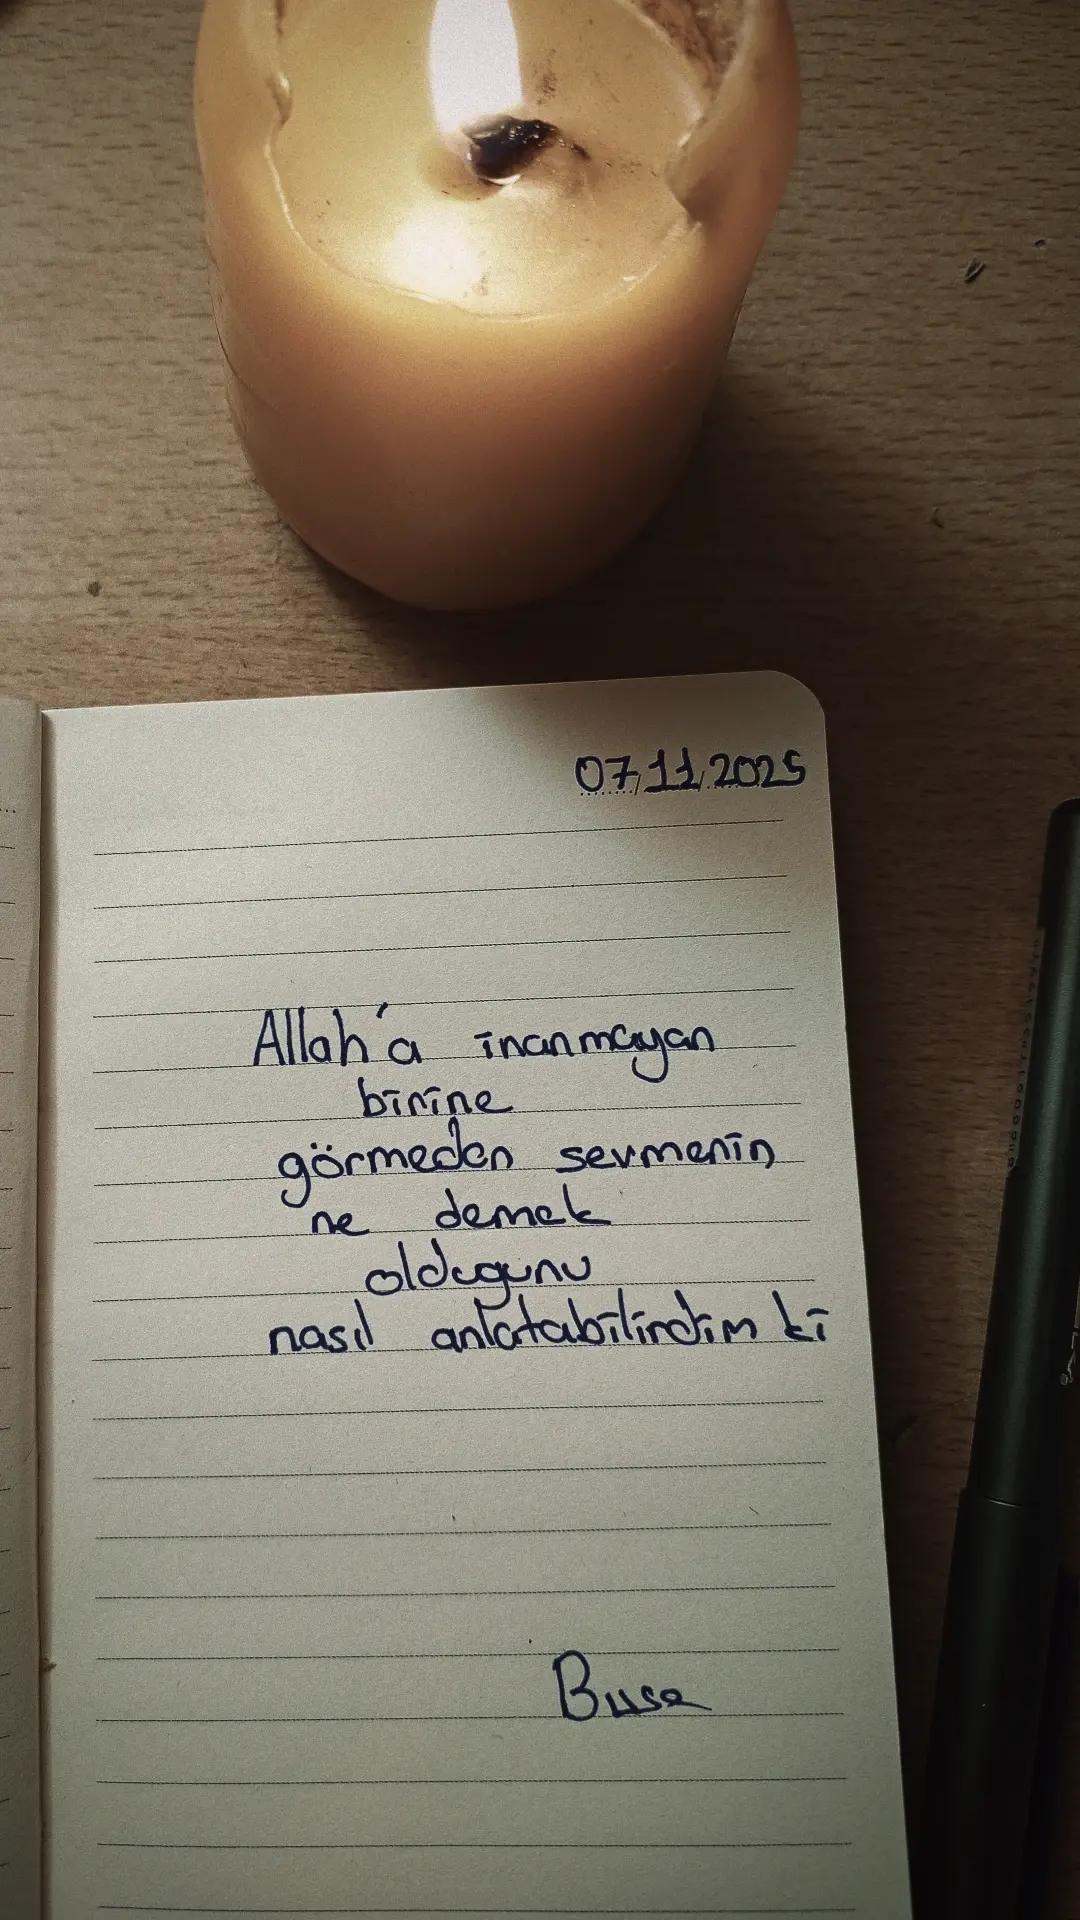 07.11.2025
Allah'a inanmayan
birine
görmeden sevmenin
ne demek
olduğunu
nasıl anlatabilirdim ki
Buse